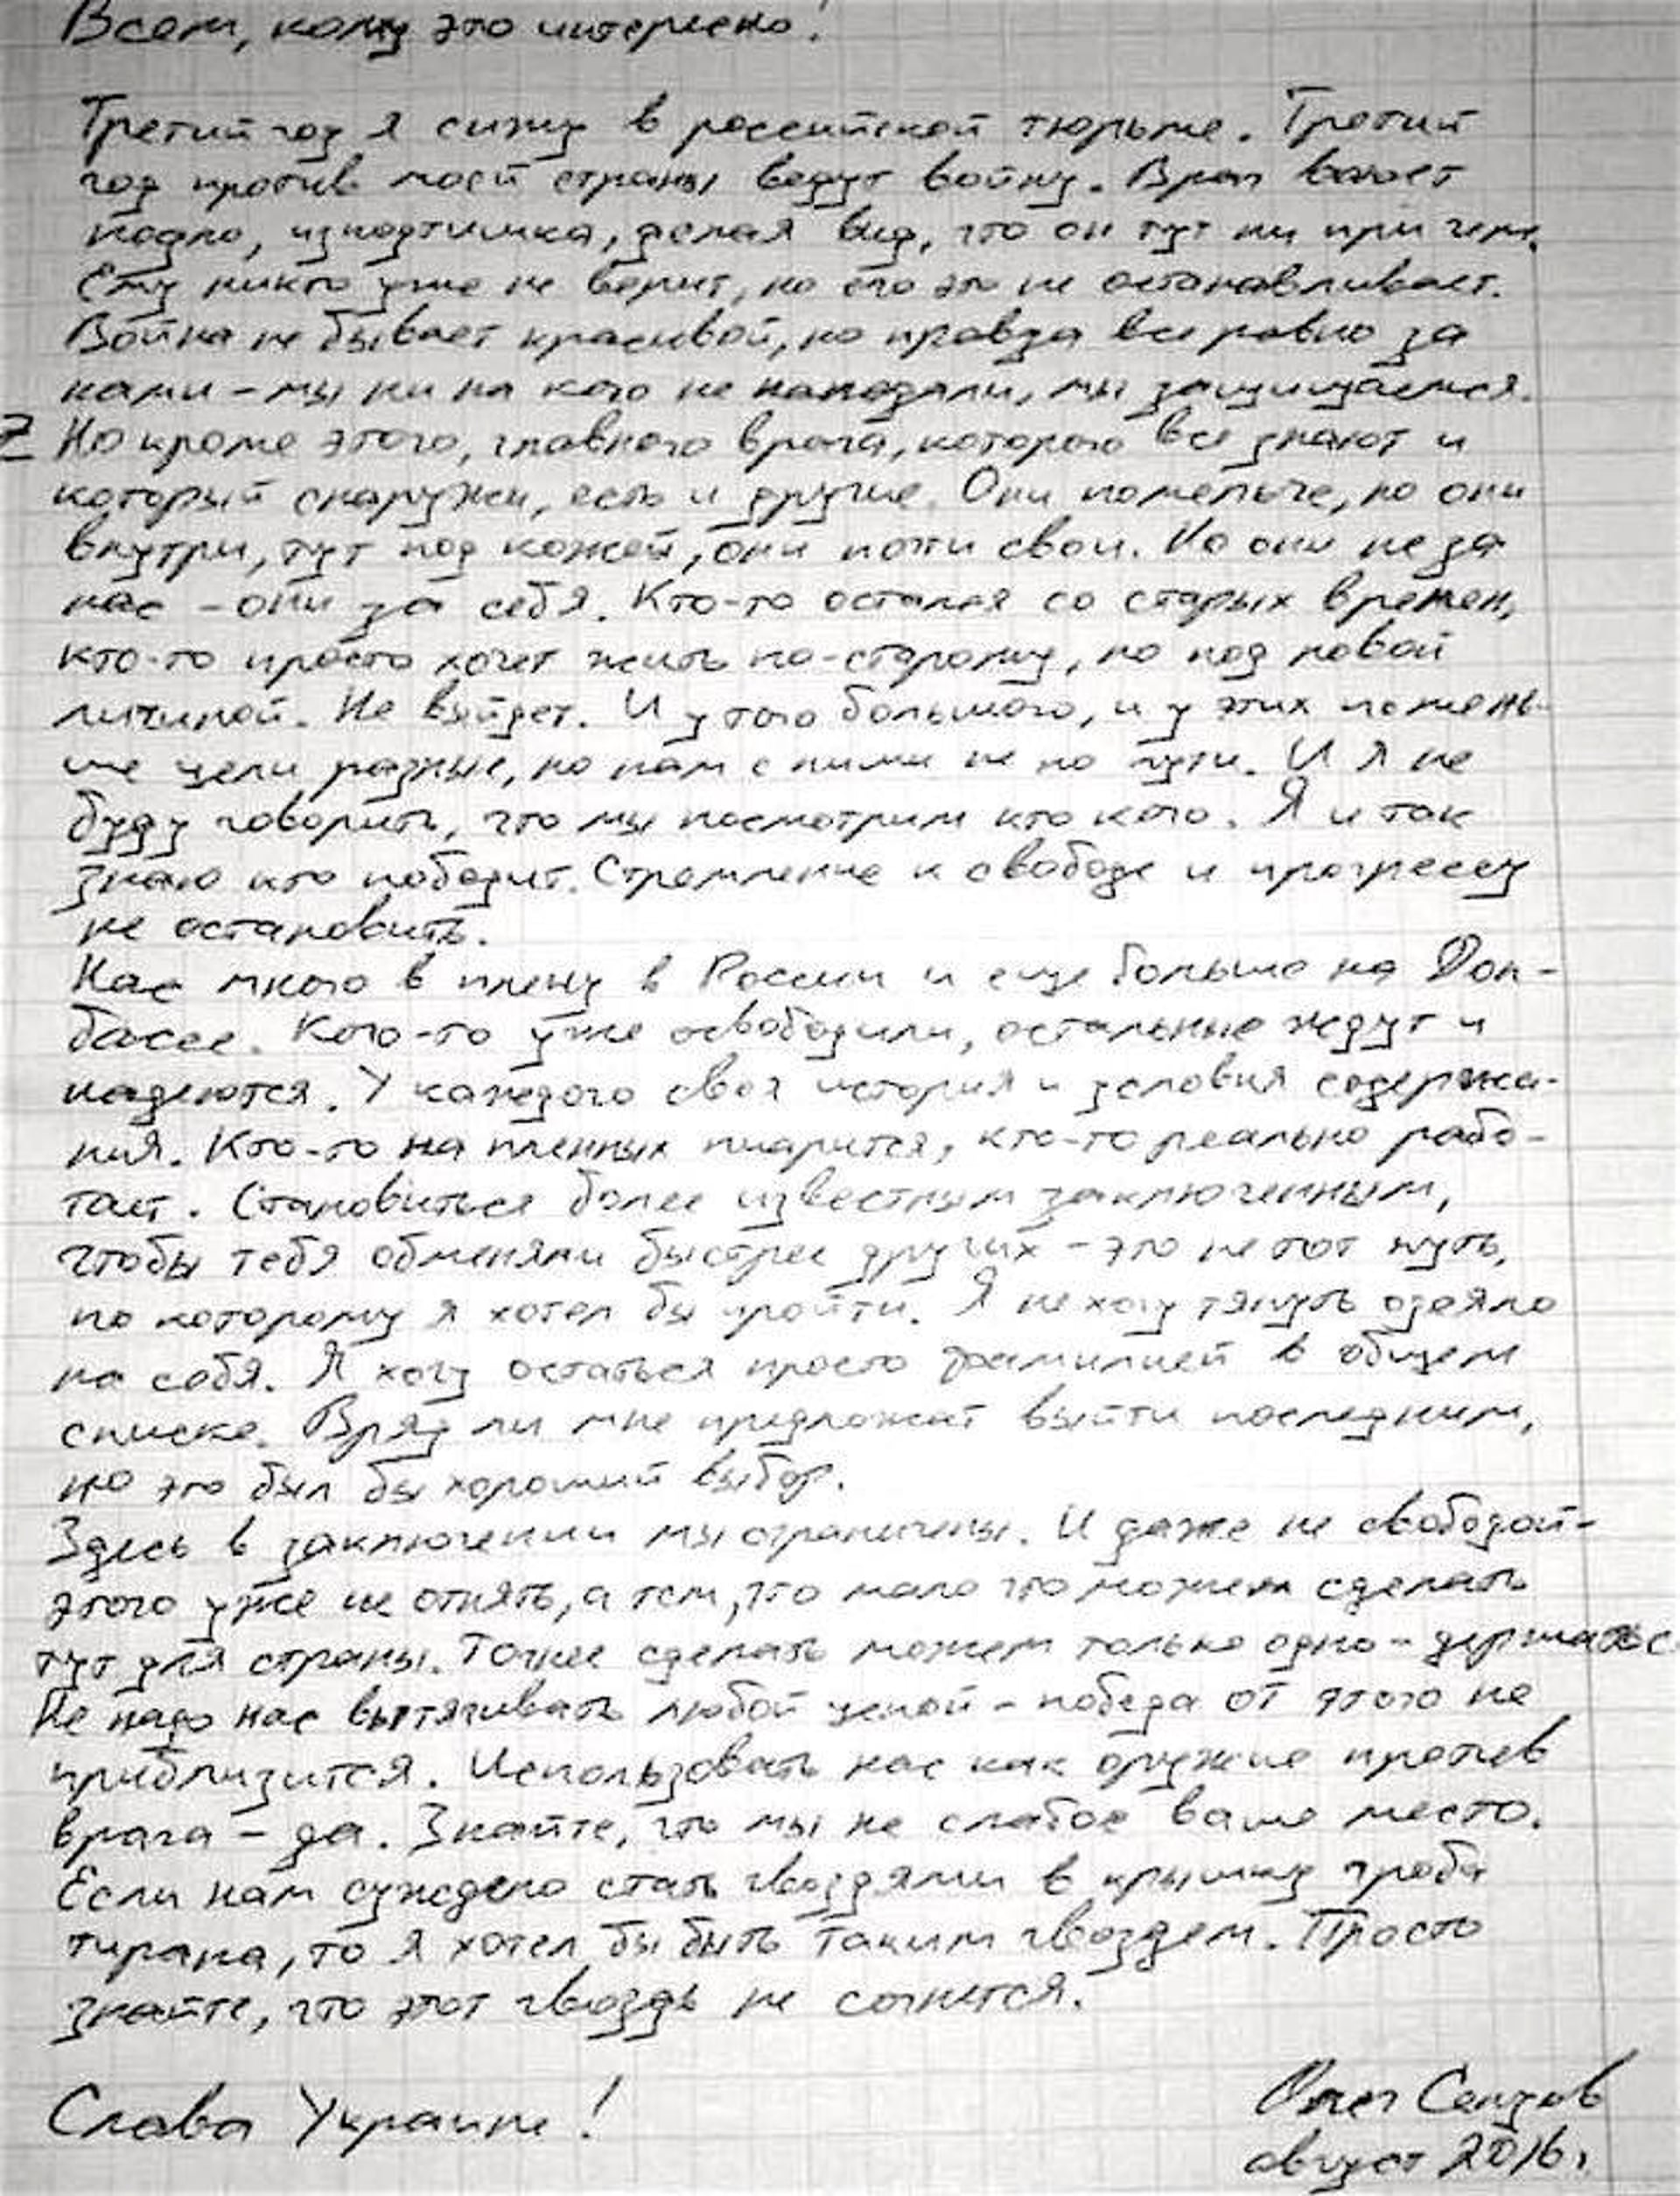 Всем, кому это интересно!
Третий год я сижу в российской тюрьме. Третий
год против моей страны ведут войну. Враг воюет
подло, исподтишка, делая вид, что он тут ни при чем.
Ему никто уже не верит, но его это не останавливает.
Война не бывает красивой, но правда все равно за
нами – мы ни на кого не нападали, мы защищаемся.
Z Но кроме этого, главного врага, которого все знают и
который снаружи, есть и другие. Они помельче, но они
внутри, тут под кожей, они почти свои. Но они не за
нас – они за себя. Кто-то остался со старых времен,
кто-то просто хочет жить по-старому, но под новой
личиной. Не выйдет. И у того большого, и у этих помень-
ше цели разные, но нам с ними не по пути. И я не
буду говорить, что мы посмотрим кто кого. Я и так
знаю кто победит. Стремление к свободе и прогрессу
не остановить.
Нас много в плену в России и еще больше на Дон-
бассе. Кого-то уже освободили, остальные ждут и
надеются. У каждого своя история и условия содержа-
ния. Кто-то на пленных пиарится, кто-то реально рабо-
тает. Становиться более известным заключенным,
чтобы тебя обменяли быстрее других – это не тот путь,
по которому я хотел бы пройти. Я не хочу тянуть одеяло
на себя. Я хочу остаться просто фамилией в общем
списке. Вряд ли мне предложат выйти последним,
но это был бы хороший выбор.
Здесь в заключении мы ограничены. И даже не свободой –
этого уже не отнять, а тем, что мало что можем сделать
тут для страны. Точнее сделать можем только одно – держатьс
Не надо нас вытягивать любой ценой – победа от этого не
приблизится. Использовать нас как оружие против
врага – да. Знайте, что мы не слабое ваше место.
Если нам суждено стать гвоздями в крышку гроба
тирана, то я хотел бы быть таким гвоздем. Просто
знайте, что этот гвоздь не согнется.
Слава Украине!
Олег Сенцов
август 2016г.